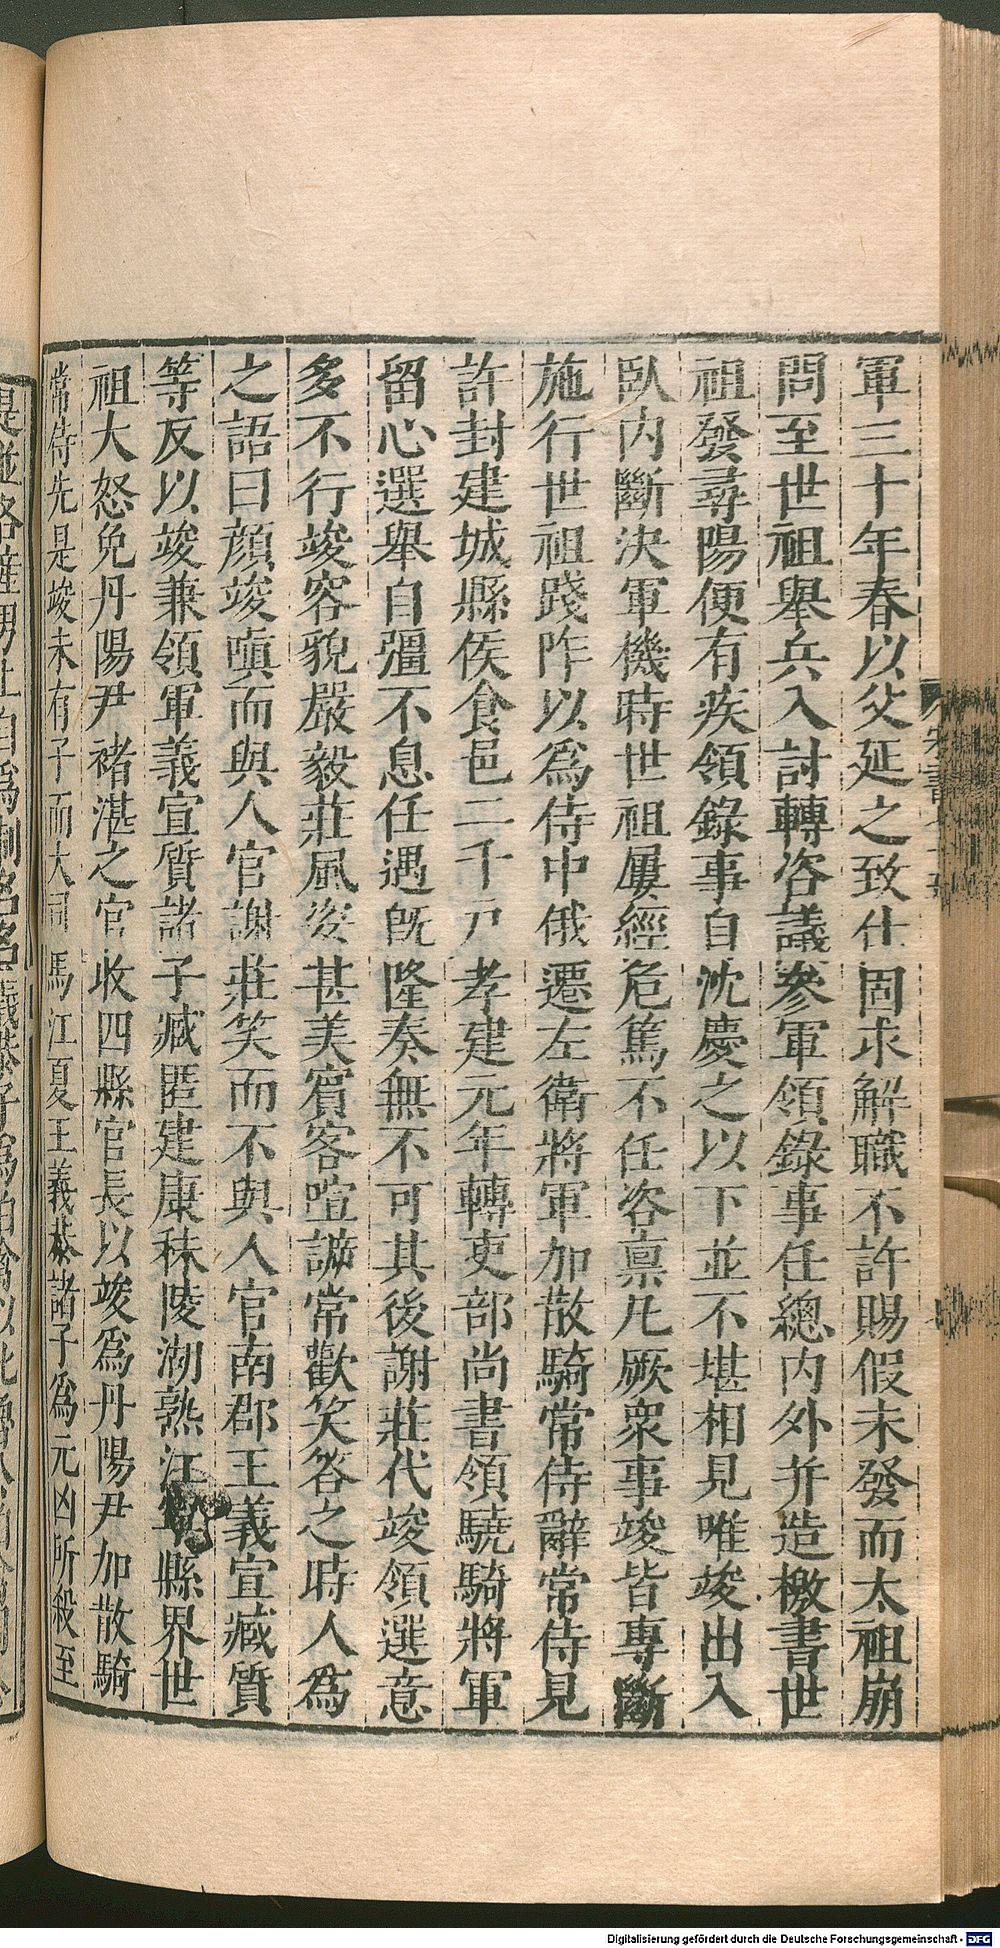 軍三十年春以父延之致仕固求解職不許賜假未發而太祖崩
問至世祖舉兵入討轉咨議參軍領錄事任總內外并造檄書世
祖發尋陽便有疾領錄事自沈慶之以下並不堪相見唯竣出入
臥內斷決軍機時世祖屢經危篤不任咨稟凡厥眾事竣皆專斷
施行世祖踐阼以為侍中俄遷左衛將軍加散騎常侍辭常侍見
許封建城縣侯食邑二千戶孝建元年轉吏部尚書領驍騎將軍
留心選舉自彊不息任遇既隆奏無不可其後謝莊代竣領選意
多不行竣容貌嚴毅莊風姿甚美賓客喧訴常歡笑答之時人為
之語曰顏竣嗔而與人官謝莊笑而不與人官南郡王義宣臧質
等反以竣兼領軍義宣質諸子臧匿建康秣陵湖熟江寧縣界世
祖大怒免丹陽尹褚湛之官收四縣官長以竣為丹陽尹加散騎
常侍先是竣未有子而大司馬江夏王義恭諸子為元凶所殺至
Digitalisierung gefördert durch die Deutsche Forschungsgemeinschaft - DFG